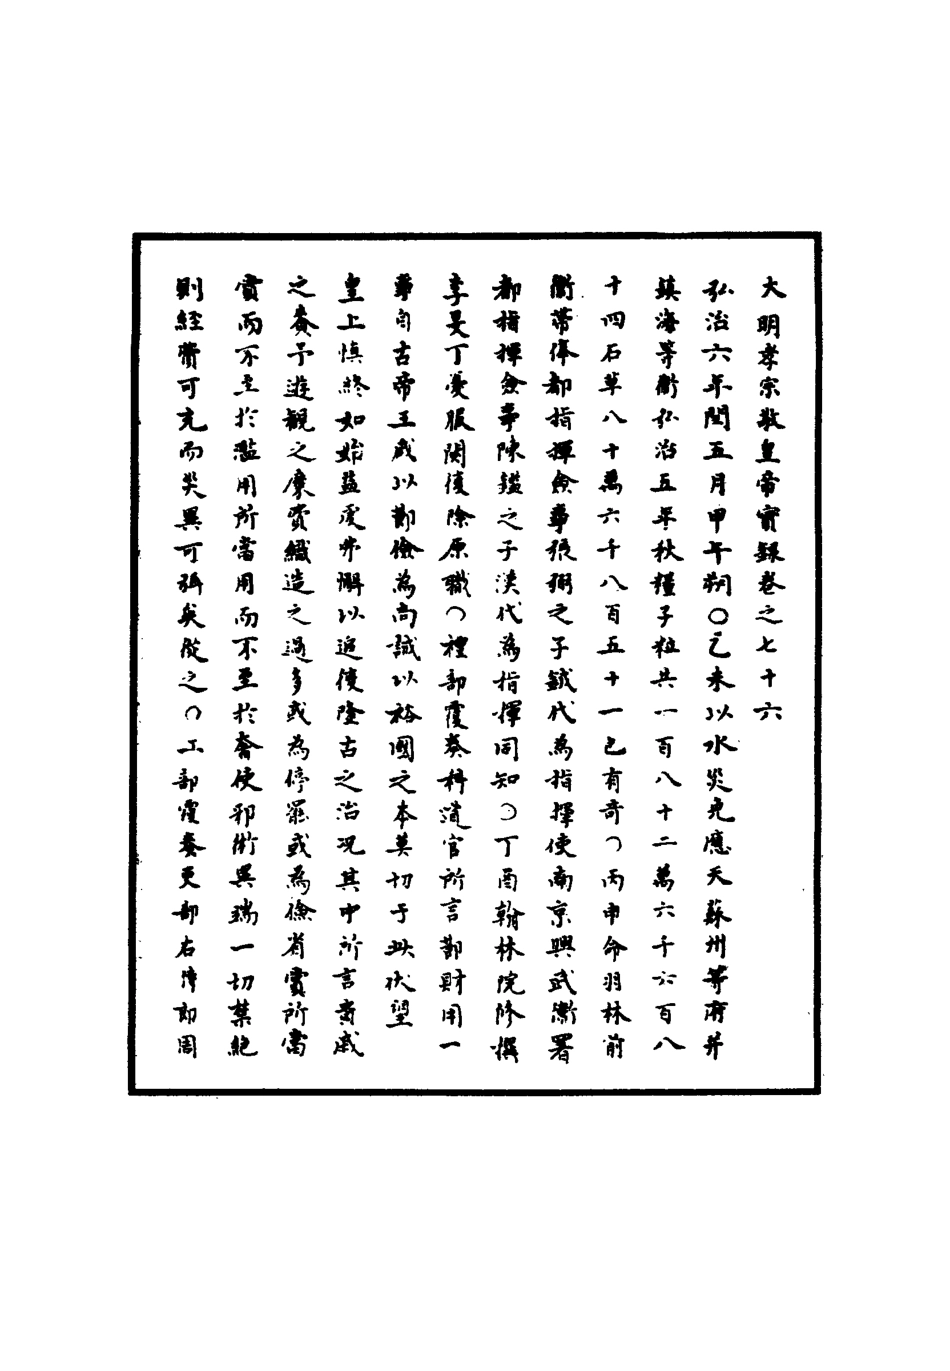 大明孝宗敬皇帝實錄卷之七十六
弘治六年閏五月甲午朔○乙未以水災免應天蘇州等府并
鎮海等衛弘治五年秋糧子粒共一百八十二萬六千六百八
十四石草八十萬六千八百五十一包有奇○丙申命羽林前
衛帶俸都指揮僉事張弼之子鉞代為指揮使南京興武衛署
都指揮僉事陳鑑之子漢代為指揮同知○丁酉翰林院修撰
李旻丁憂服闋復除原職○禮部覆奏科道官所言節財用一
事自古帝王咸以勤儉為尚誠以裕國之本莫切于此伏望
皇上慎終如始益虔弗懈以追復隆古之治況其中所言貴戚
之賚予遊觀之糜費織造之過多或為停罷或為儉省賞所當
賞而不至於濫用所當用而不至於奢使邪術異端一切禁絕
則經費可充而災異可弭矣從之○工部覆奏吏部右侍郎周